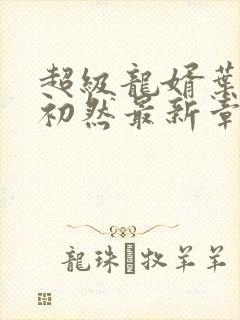 超級龍婿葉
初然最新章
龍珠 牧羊羊